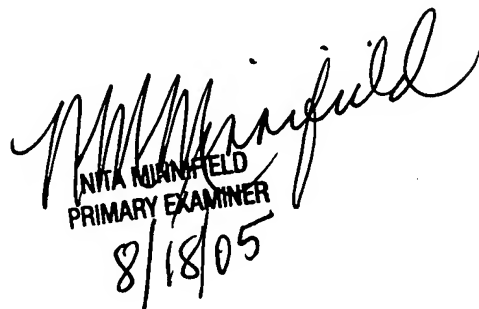 NMMinnifield
NITA MINNIFIELD
PRIMARY EXAMINER
8/18/05